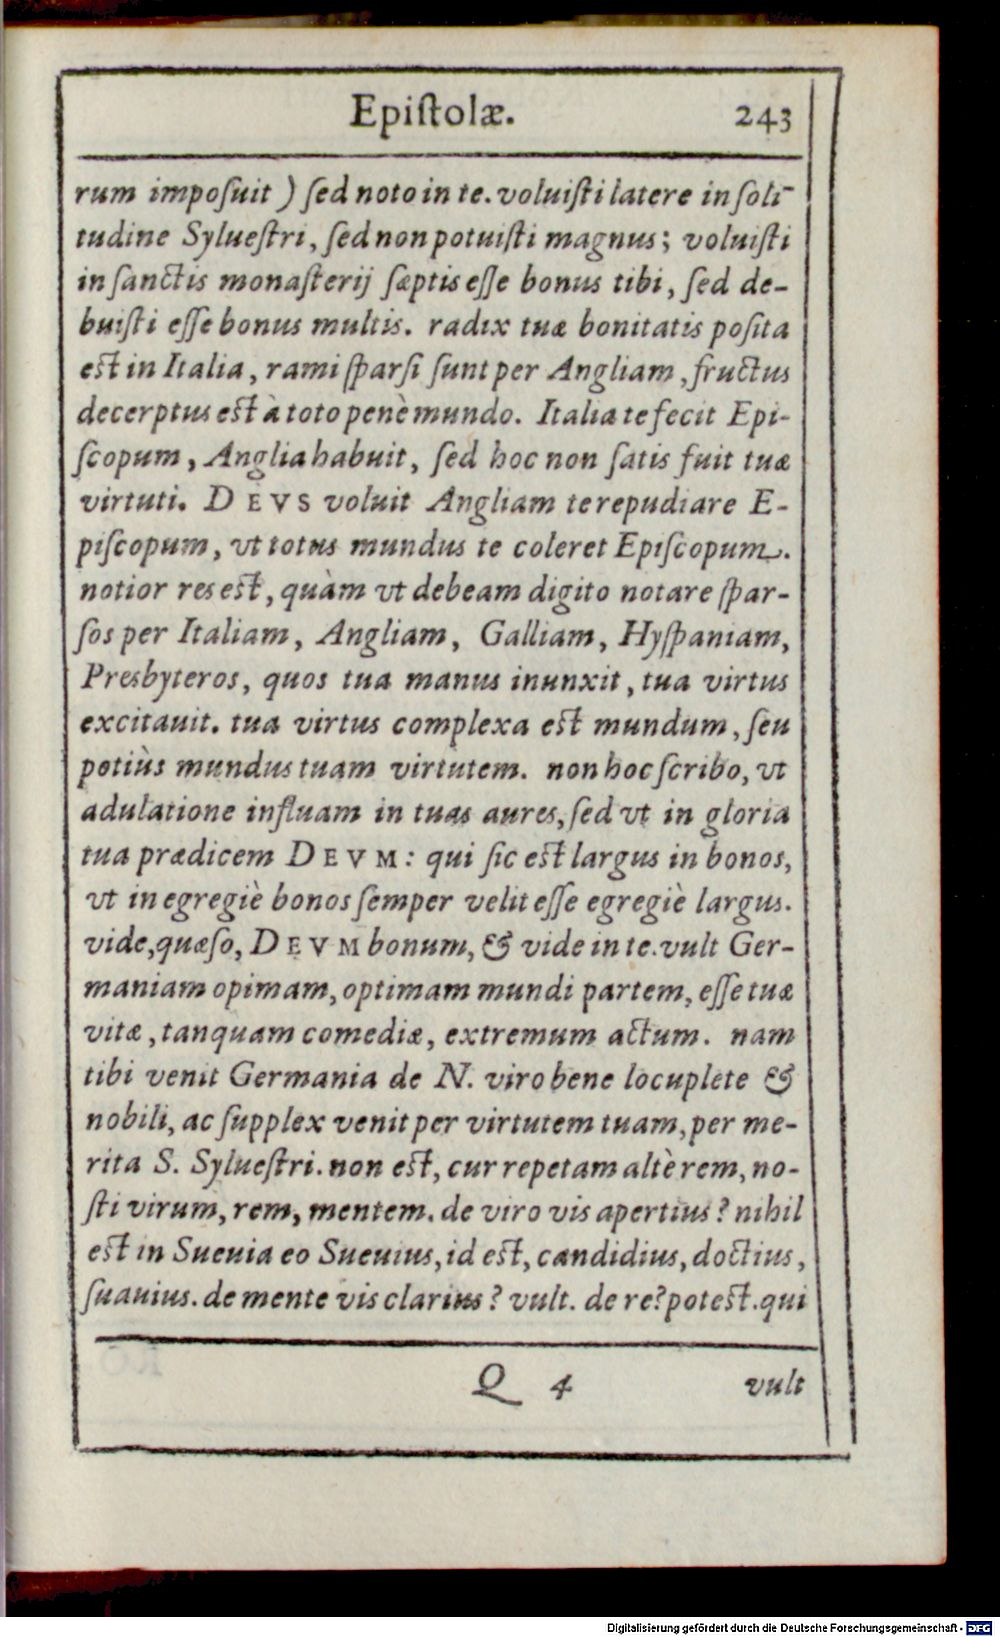 Epiſtolæ. 243
rum impoſuit ) ſed noto in te. voluiſti latere in ſoli-
tudine Sylueſtri, ſed non potuiſti magnus; voluiſti
in ſanctis monaſterij ſæptis eſſe bonus tibi, ſed de-
buiſti eſſe bonus multis. radix tuæ bonitatis poſita
eſt in Italia, rami ſparſi ſunt per Angliam, fructus
decerptus eſt à toto penè mundo. Italia te fecit Epi-
ſcopum, Anglia habuit, ſed hoc non ſatis fuit tuæ
virtuti. DEVS voluit Angliam te repudiare E-
piſcopum, vt totus mundus te coleret Epiſcopum.
notior res eſt, quàm vt debeam digito notare ſpar-
ſos per Italiam, Angliam, Galliam, Hyſpaniam,
Presbyteros, quos tua manus inunxit, tua virtus
excitauit. tua virtus complexa eſt mundum, ſeu
potiùs mundus tuam virtutem. non hoc ſcribo, vt
adulatione influam in tuas aures, ſed vt in gloria
tua prædicem DEVM: qui ſic eſt largus in bonos,
vt in egregiè bonos ſemper velit eſſe egregiè largus.
vide, quæſo, DEVM bonum, & vide in te. vult Ger-
maniam opimam, optimam mundi partem, eſſe tuæ
vitæ, tanquam comediæ, extremum actum. nam
tibi venit Germania de N. viro bene locuplete &
nobili, ac ſupplex venit per virtutem tuam, per me-
rita S. Sylueſtri. non eſt, cur repetam altè rem, no-
ſti virum, rem, mentem. de viro vis apertius? nihil
eſt in Sueuia eo Sueuius, id eſt, candidius, doctius,
ſuauius. de mente vis clarius? vult. de re? poteſt. qui
Q 4 vult
Digitalisierung gefördert durch die Deutsche Forschungsgemeinschaft - DFG